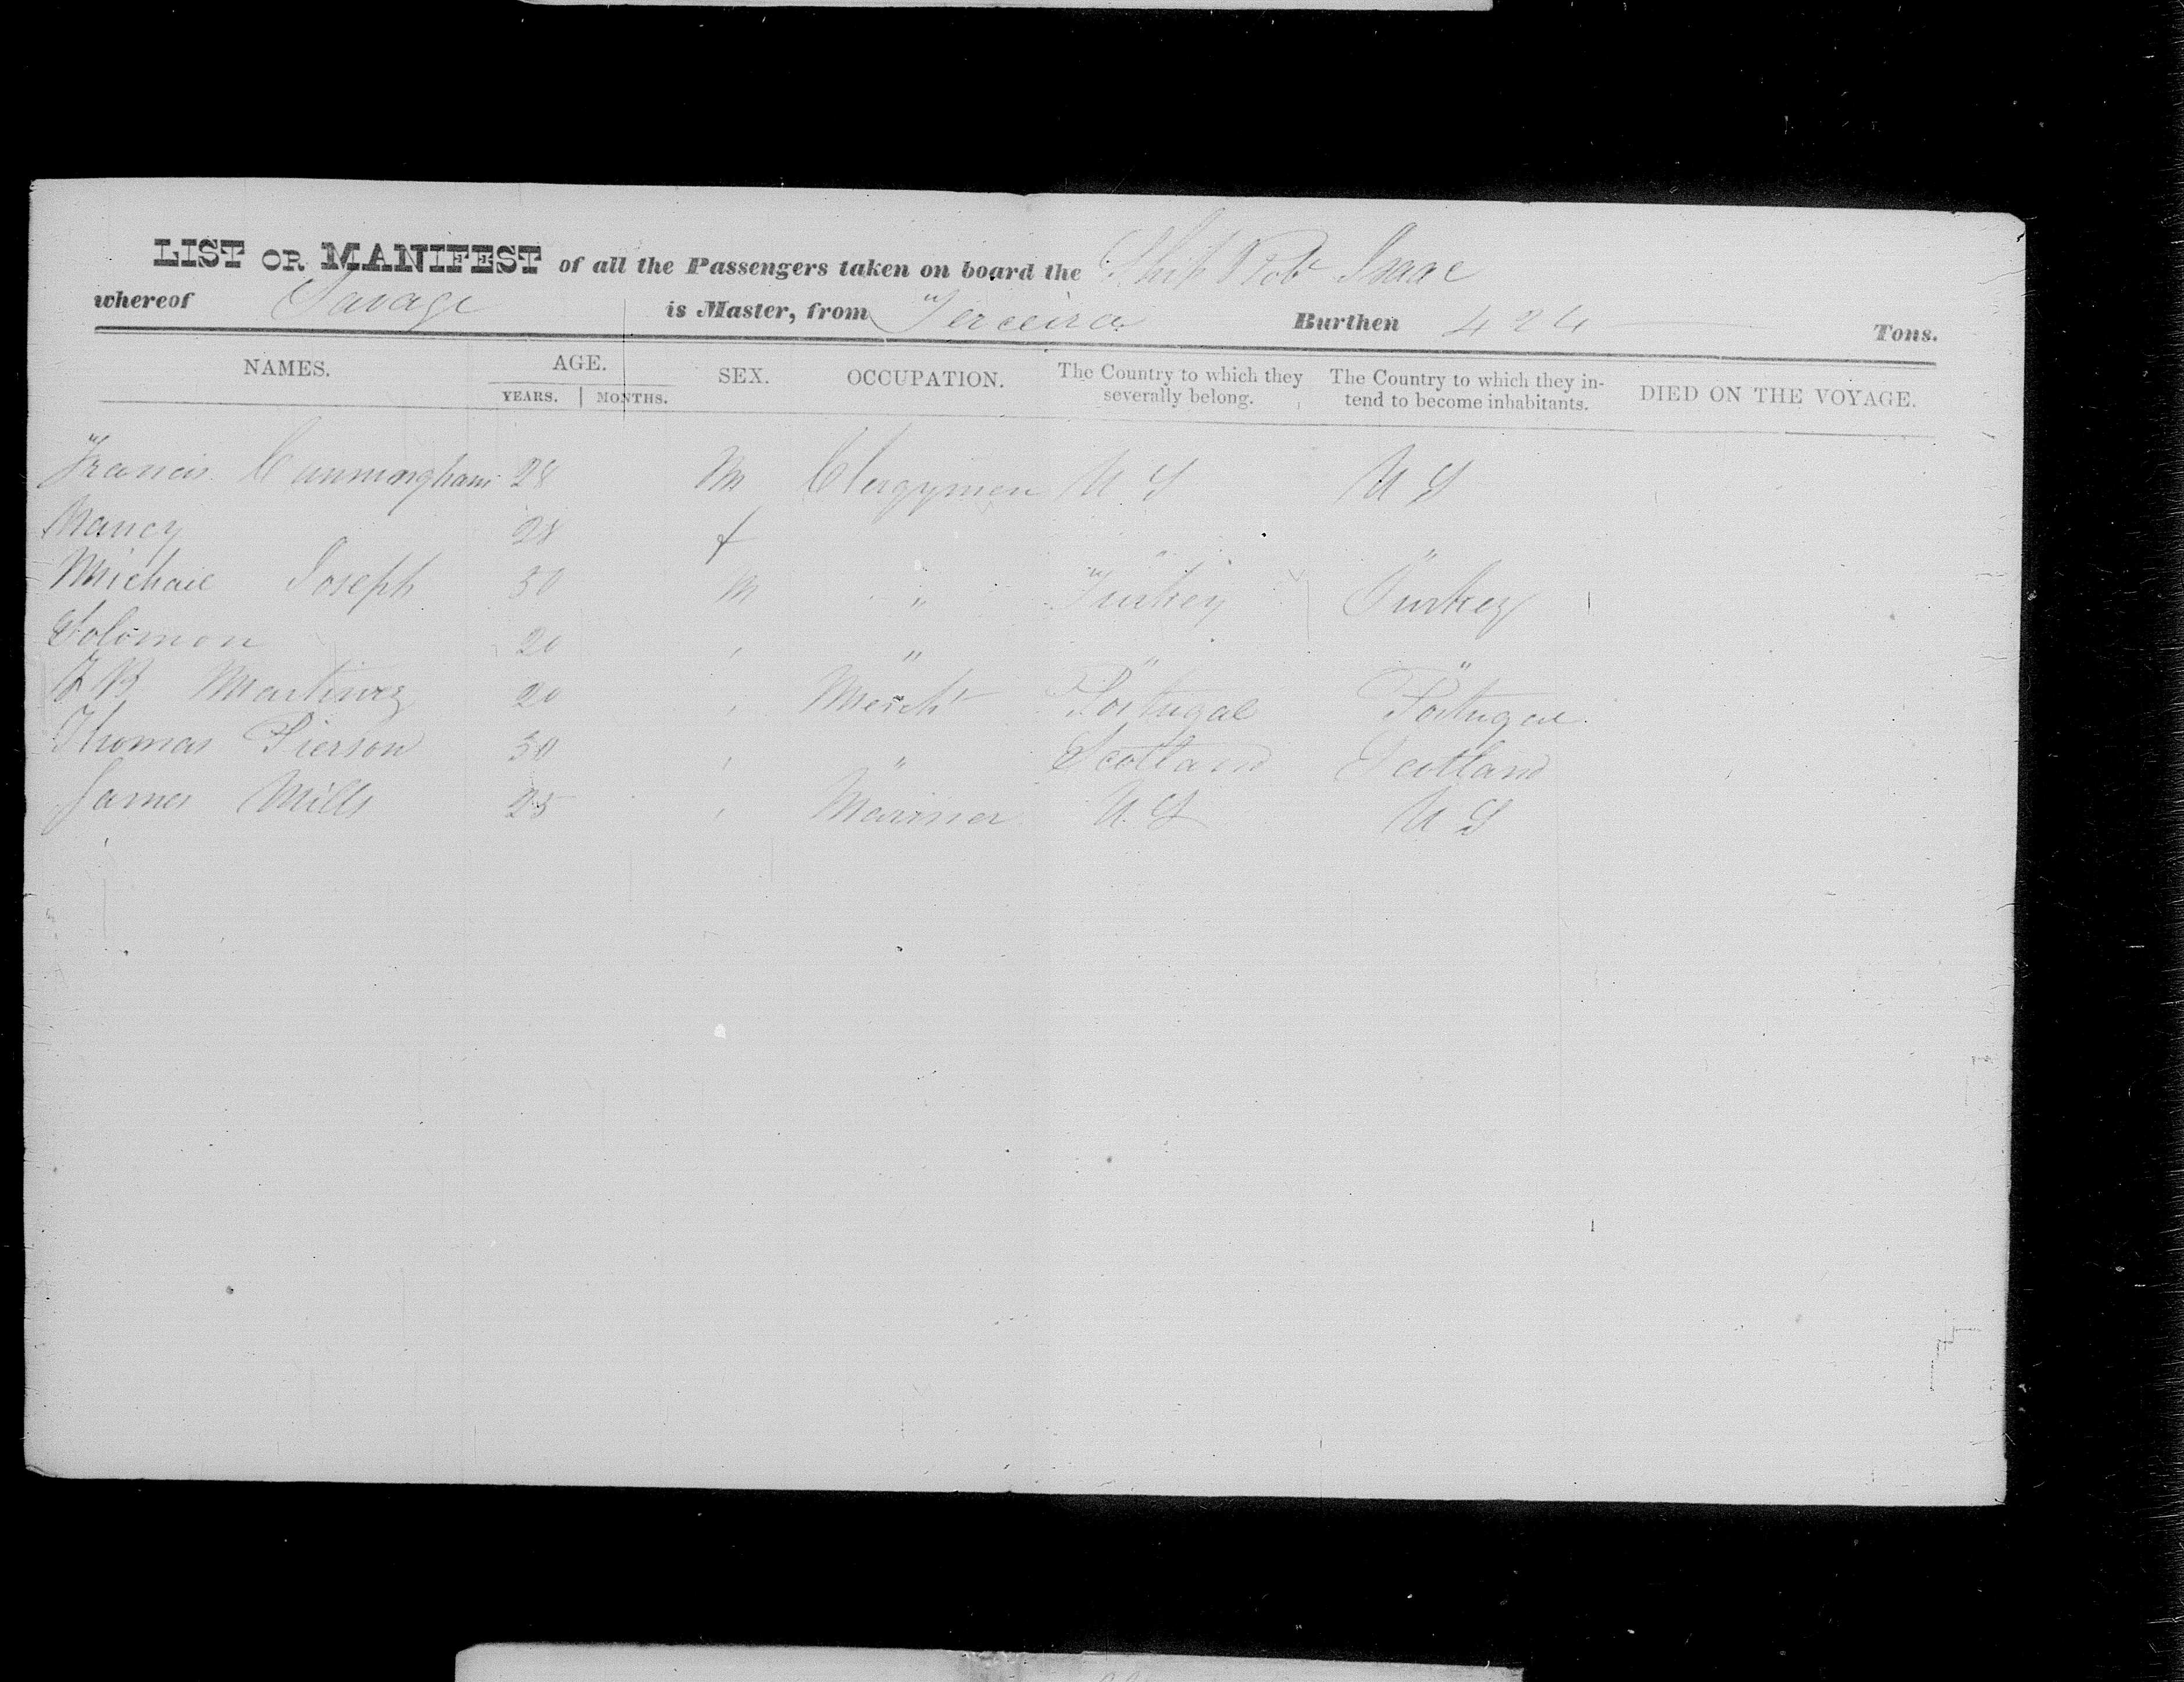 LIST OR MANIFEST of all the Passengers taken on board the Ship Rob Isaac
whereof Savage is Master, from Terceira Burthen 424 Tons.
NAMES. AGE. YEARS. MONTHS. SEX. OCCUPATION. The Country to which they severally belong. The Country to which they intend to become inhabitants. DIED ON THE VOYAGE.
Francis Cunningham 28 M Clergymen U S U S
Nancy 28 f
Michael Joseph 30 M " Turkey Turkey
Solomon 20 ' " " "
Martinez 20 ' Mercht Portugal Portugal
Thomas Pierson 30 ' " Scotland Scotland
James Mills 25 ' Mariner U.S U S